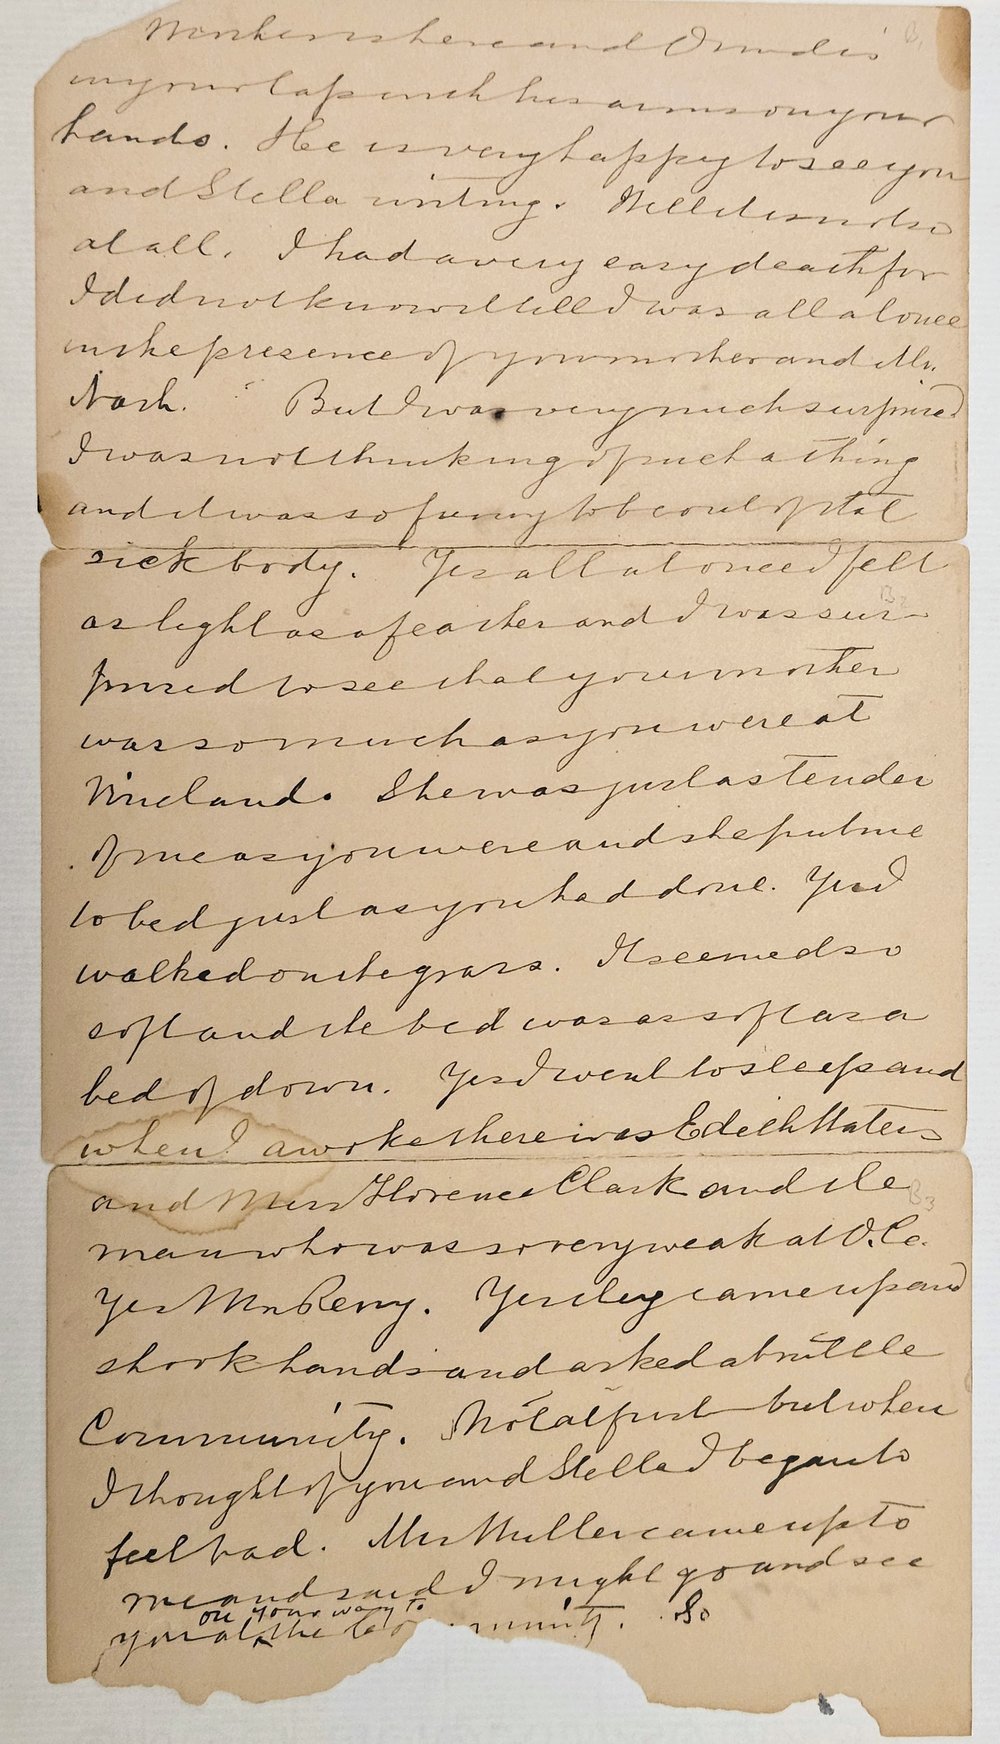 here and Ormond is
in your lap with his arms on your
hands. He is very happy to see you
and Stella writing. Well it is not so
at all. I had a very easy death for
I did not know it till I was all alonee
in the presence of your mother and Mr.
Nash. But I was very much surprised
I was not thinking of such a thing
and it was so funny to be out of that
sick body. Yes all at oncee I felt
as light as a feather and I was sur-
prised to see that your mother
was so much as you were at
Vineland. She was just as tender
of me as you were and she put me
to bed just as you had done. Yes I
walked on the grass. It seemed so
soft and the bed was as soft as a
bed of down. Yes I went to sleep and
when I awoke there was Edith Waters
and Miss Florence Clark and the
man who was so very weak at O.C.
Yes Mr Perry. Yes they came up and
shook hands and asked about the
Community. Not at first but when
I thought of you and Stella I began to
feel bad. Mrs Muller came up to
me and said I might go and see
on your way to
you at the munity. So
B3